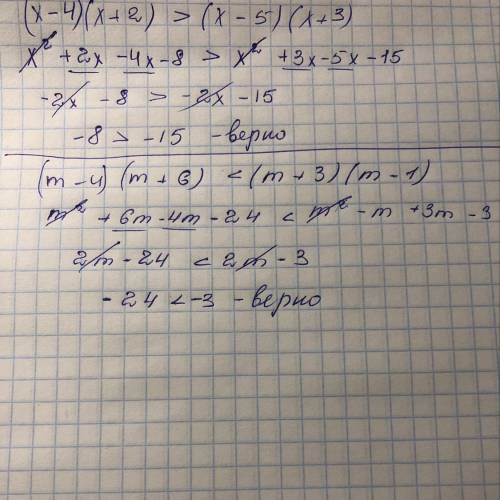 (x-4)(x+2) > (x-5)(x+3)
x² +2x -4x-8 > x² +3x-5x-15
-2x -8 > -2x -15
-8 > -15 -верно
(m-4)(m+6) <(m+3)(m-1)
m² +6m-4m-24 < m²-m+3m-3
2m-24 < 2m-3
-24 <-3 -верно